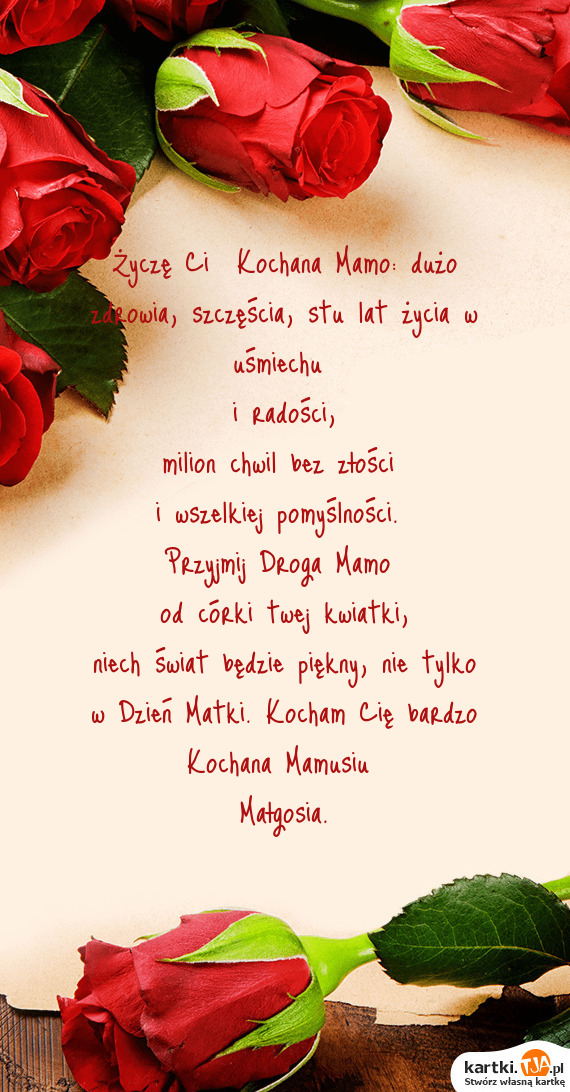 Życzę Ci Kochana Mamo: dużo
zdrowia, szczęścia, stu lat życia w
uśmiechu
i radości,
milion chwil bez złości
i wszelkiej pomyślności.
Przyjmij Droga Mamo
od córki twej kwiatki,
niech świat będzie piękny, nie tylko
w Dzień Matki. Kocham Cię bardzo
Kochana Mamusiu
Małgosia.
kartki.TJA.pl
Stwórz własną kartkę